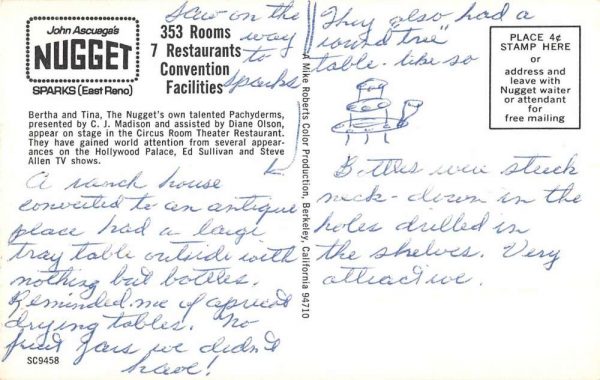 John Ascuaga's
NUGGET
SPARKS (East Reno)
353 Rooms
7 Restaurants
Convention
Facilities
Bertha and Tina, The Nugget's own talented Pachyderms,
presented by C. J. Madison and assisted by Diane Olson,
appear on stage in the Circus Room Theater Restaurant.
They have gained world attention from several appear-
ances on the Hollywood Palace, Ed Sullivan and Steve
Allen TV shows.
Saw on the
way
to
Sparks
A ranch house
converted to an antique
place had a large
tray table outside with
nothing but bottles.
Reminded me of apricot
drying tables. No
fruit jars we didn't
have!
SC9458
A Mike Roberts Color Production, Berkeley, California 94710
They also had a
round tree
table - like so
Bottles were stuck
neck-down in the
holes drilled in
the shelves. Very
attractive.
PLACE 4¢
STAMP HERE
or
address and
leave with
Nugget waiter
or attendant for
free mailing